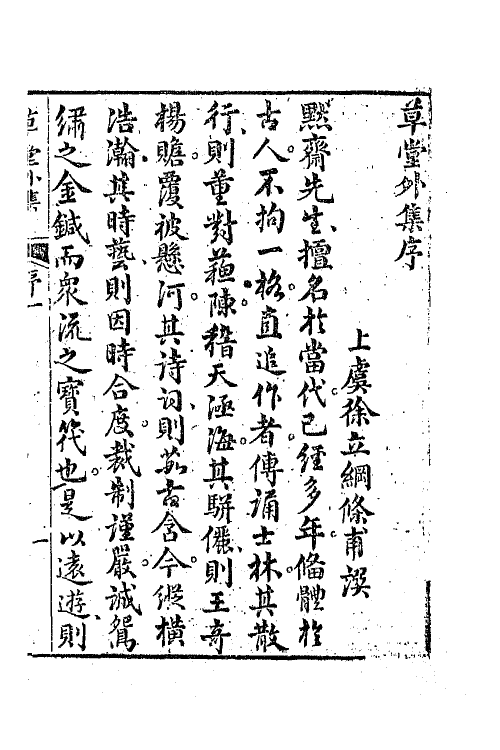 草堂外集序
上虞徐立綱條甫譔
默齋先生擅名於當代已經多年備體於
古人不拘一格直追作者傳誦士林其散
行則董對蘓陳稽天涵海其駢儷則王奇
楊贍覆被懸河其詩詞則茹古含今縱橫
浩瀚其時藝則因時合度裁制謹嚴誠鴛
繡之金鍼而衆流之寶筏也是以遠遊則
草堂外集 序 一